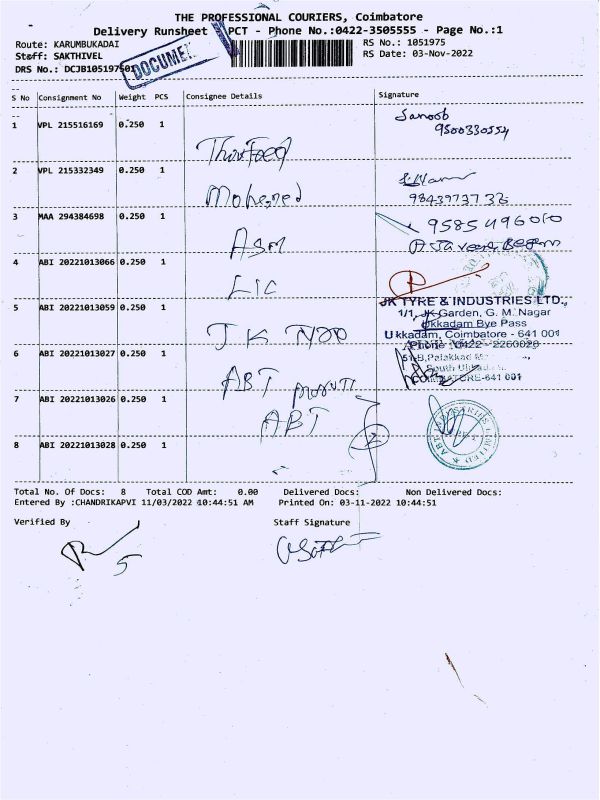 THE PROFESSIONAL COURIERS, Coimbatore
Delivery Runsheet PCT - Phone No.:0422-3505555 - Page No.:1
Route: KARUMBUKADAI RS No.: 1051975
Staff: SAKTHIVEL RS Date: 03-Nov-2022
DRS No.: DCJB105197501
DOCUMENT
S No Consignment No Weight PCS Consignee Details Signature
1 VPL 215516169 0.250 1 Sanoob
9500330554
2 VPL 215332349 0.250 1 Mohamed
9843973736
3 MAA 294384698 0.250 1 ASM 9585496010
4 ABI 20221013066 0.250 1 LIC
JK TYRE & INDUSTRIES LTD.,
5 ABI 20221013059 0.250 1 1/1, JK Garden, G. M. Nagar
Ukkadam Bye Pass
J.K Ukkadam, Coimbatore - 641 001
Phone : 0422 - 2260029
6 ABI 20221013027 0.250 1 51-B, Palakkad
South Ukkadam
ABT COIMBATORE-641 001
7 ABI 20221013026 0.250 1 ABT
ABT INDUSTRIES LIMITED
8 ABI 20221013028 0.250 1
Total No. Of Docs: 8 Total COD Amt: 0.00 Delivered Docs: Non Delivered Docs:
Entered By :CHANDRIKAPVI 11/03/2022 10:44:51 AM Printed On: 03-11-2022 10:44:51
Verified By Staff Signature